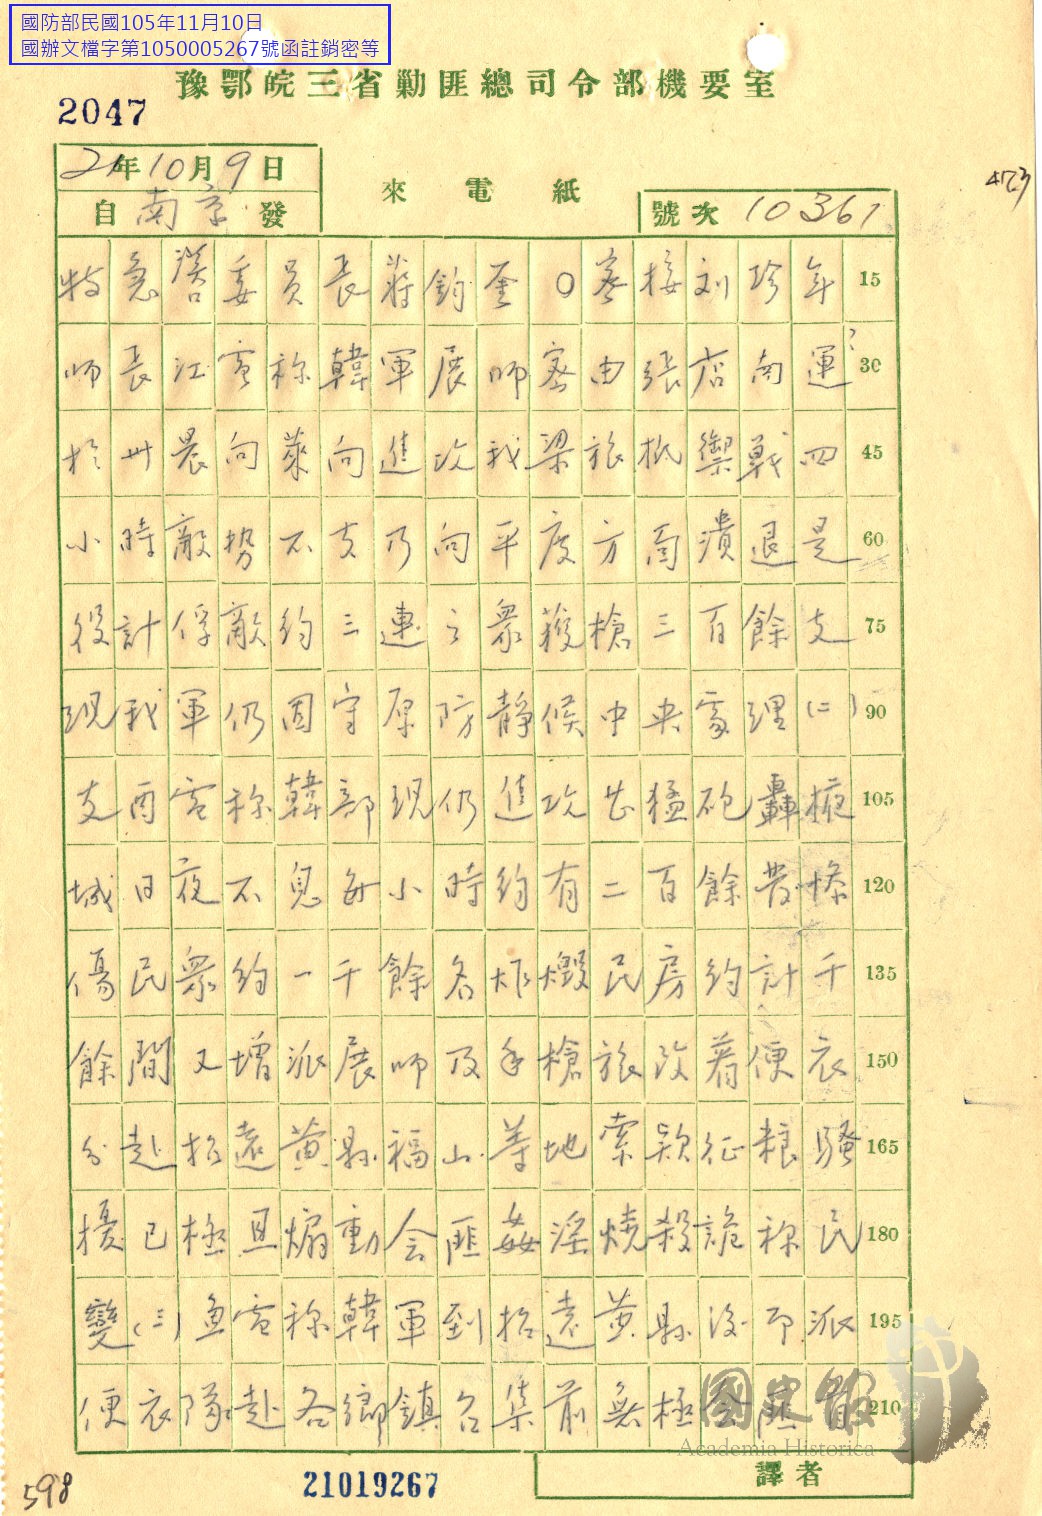 國防部民國105年11月10日
國辦文檔字第1050005267號函註銷密等
豫鄂皖三省勦匪總司令部機要室
2047
21年10月9日
自南京發
來電紙
號次 10361
特急漢口委員長蔣鈞鉴○密接刘珍年 15
师長江電称韓軍展师密由張店南運 30
於卅晨向萊向進攻我梁旅抵禦戰四 45
小時敵势不支乃向平度方面潰退是 60
役計俘敵约三連之衆獲槍三百餘支 75
现我軍仍固守原防靜候中央處理(二) 90
支酉電称韓部现仍進攻甚猛砲轟掖 105
城日夜不息每小時约有二百餘發惨 120
傷民衆约一千餘名炸燬民房约計千 135
餘間又增派展师及手槍旅改着便衣 150
分赴招遠黄縣福山等地索款征粮騷 165
擾已極且煽動会匪姦淫燒殺詭称民 180
變(三)魚電称韓軍到招遠黄縣後即派 195
便衣隊赴各鄉鎮召集前無極会匪首 210
國史館
Academia Historica
譯者
21019267
598